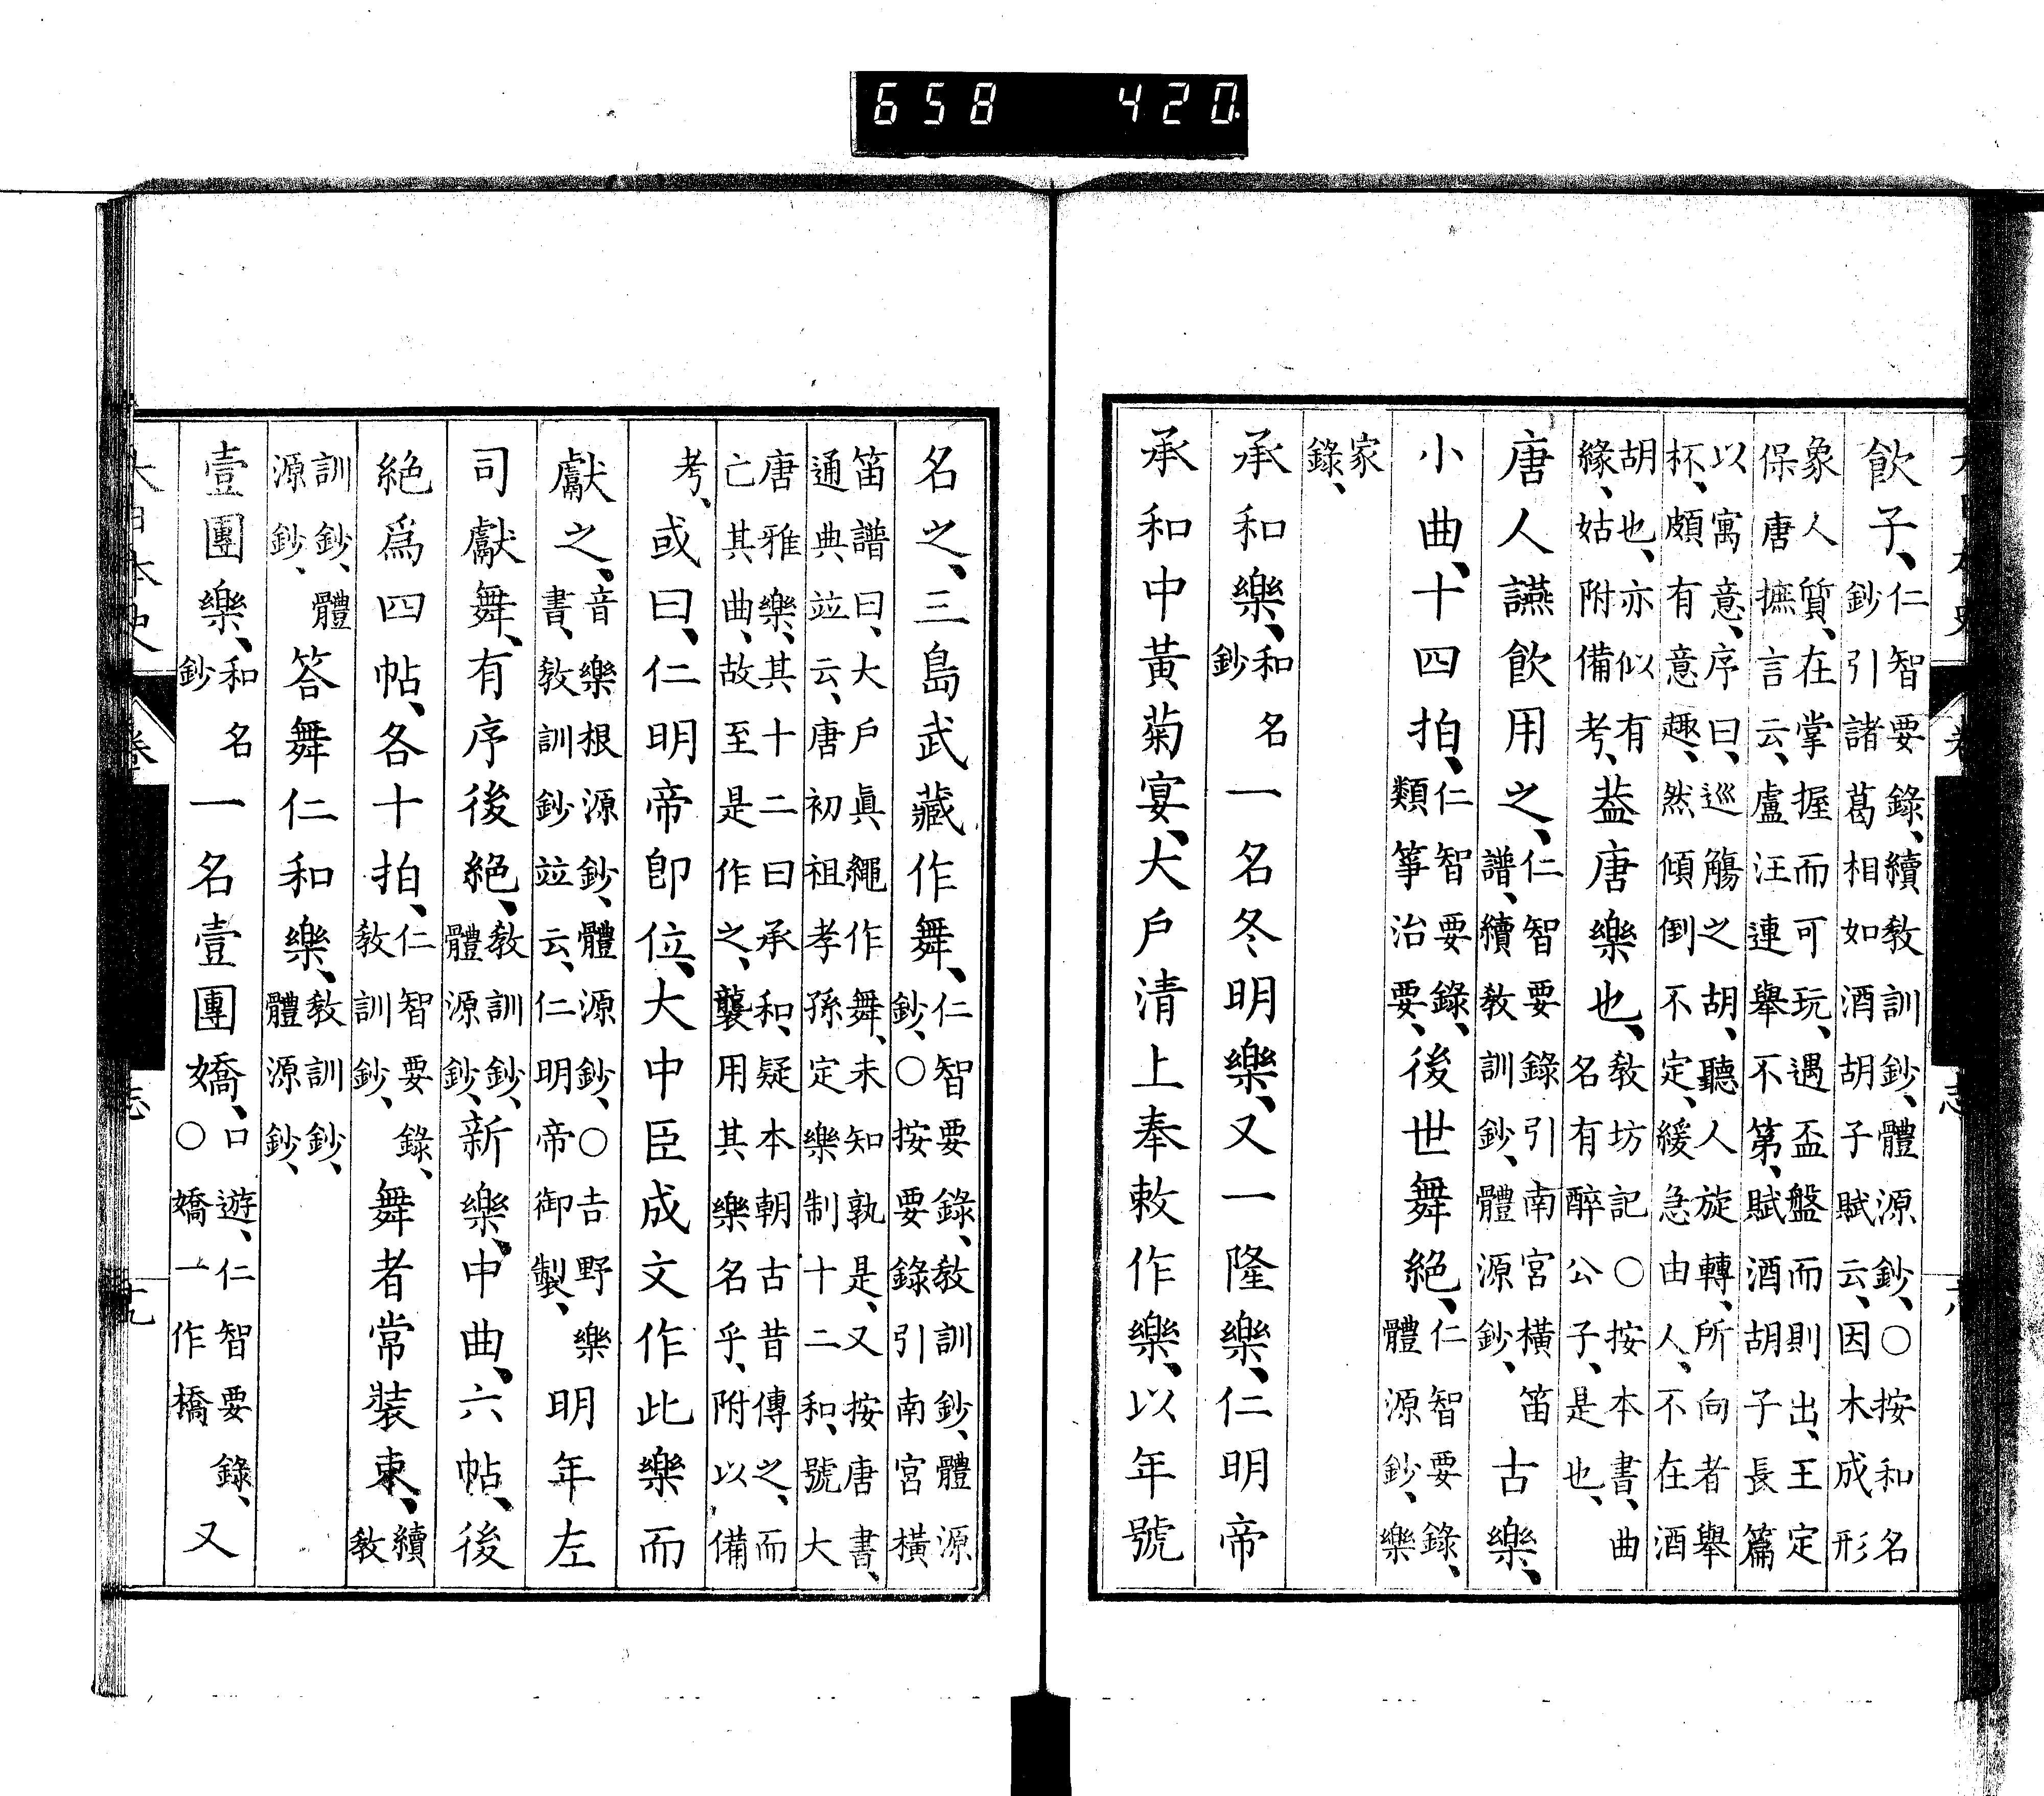 飲子、仁智要錄、續教訓鈔、體源鈔、○按和名鈔引諸葛相如酒胡子賦云、因木成形
象人質、在掌握而可玩、遇盃盤而則出、王定保唐摭言云、盧汪連舉不第、賦酒胡子長篇
以寓意、序曰、巡觴之胡、聽人旋轉、所向者舉杯、頗有意趣、然傾倒不定、緩急由人、不在酒
胡也、亦似有緣、姑附備考、葢唐樂也、教坊記○按本書、曲名有醉公子、是也、
唐人讌飲用之、仁智要錄引南宮橫笛譜、續教訓鈔、體源鈔、古樂、
小曲、十四拍、仁智要錄、類箏治要、後世舞絕、仁智要錄、體源鈔、樂
家錄、
承和樂、和名鈔一名冬明樂、又一隆樂、仁明帝
承和中黃菊宴、大戶清上奉敕作樂、以年號
名之、三島武藏作舞、仁智要錄、教訓鈔、體源鈔、○按要錄引南宮橫
笛譜曰、大戶眞繩作舞、未知孰是、又按唐書、通典竝云、唐初祖孝孫定樂制十二和、號大
唐雅樂、其十二曰承和、疑本朝古昔傳之、而亡其曲、故至是作之、襲用其樂名乎、附以備
考、或曰、仁明帝卽位、大中臣成文作此樂而
獻之、音樂根源鈔、體源鈔、○吉野樂書、教訓鈔竝云、仁明帝御製、明年左
司獻舞、有序後絕、教訓鈔、體源鈔、新樂、中曲、六帖、後
絕爲四帖、各十拍、仁智要錄、教訓鈔、舞者常裝束、續教
訓鈔、體源鈔、答舞仁和樂、教訓鈔、體源鈔、
壹團樂、和名鈔一名壹團嬌、口遊、仁智要錄、○嬌一作橋又